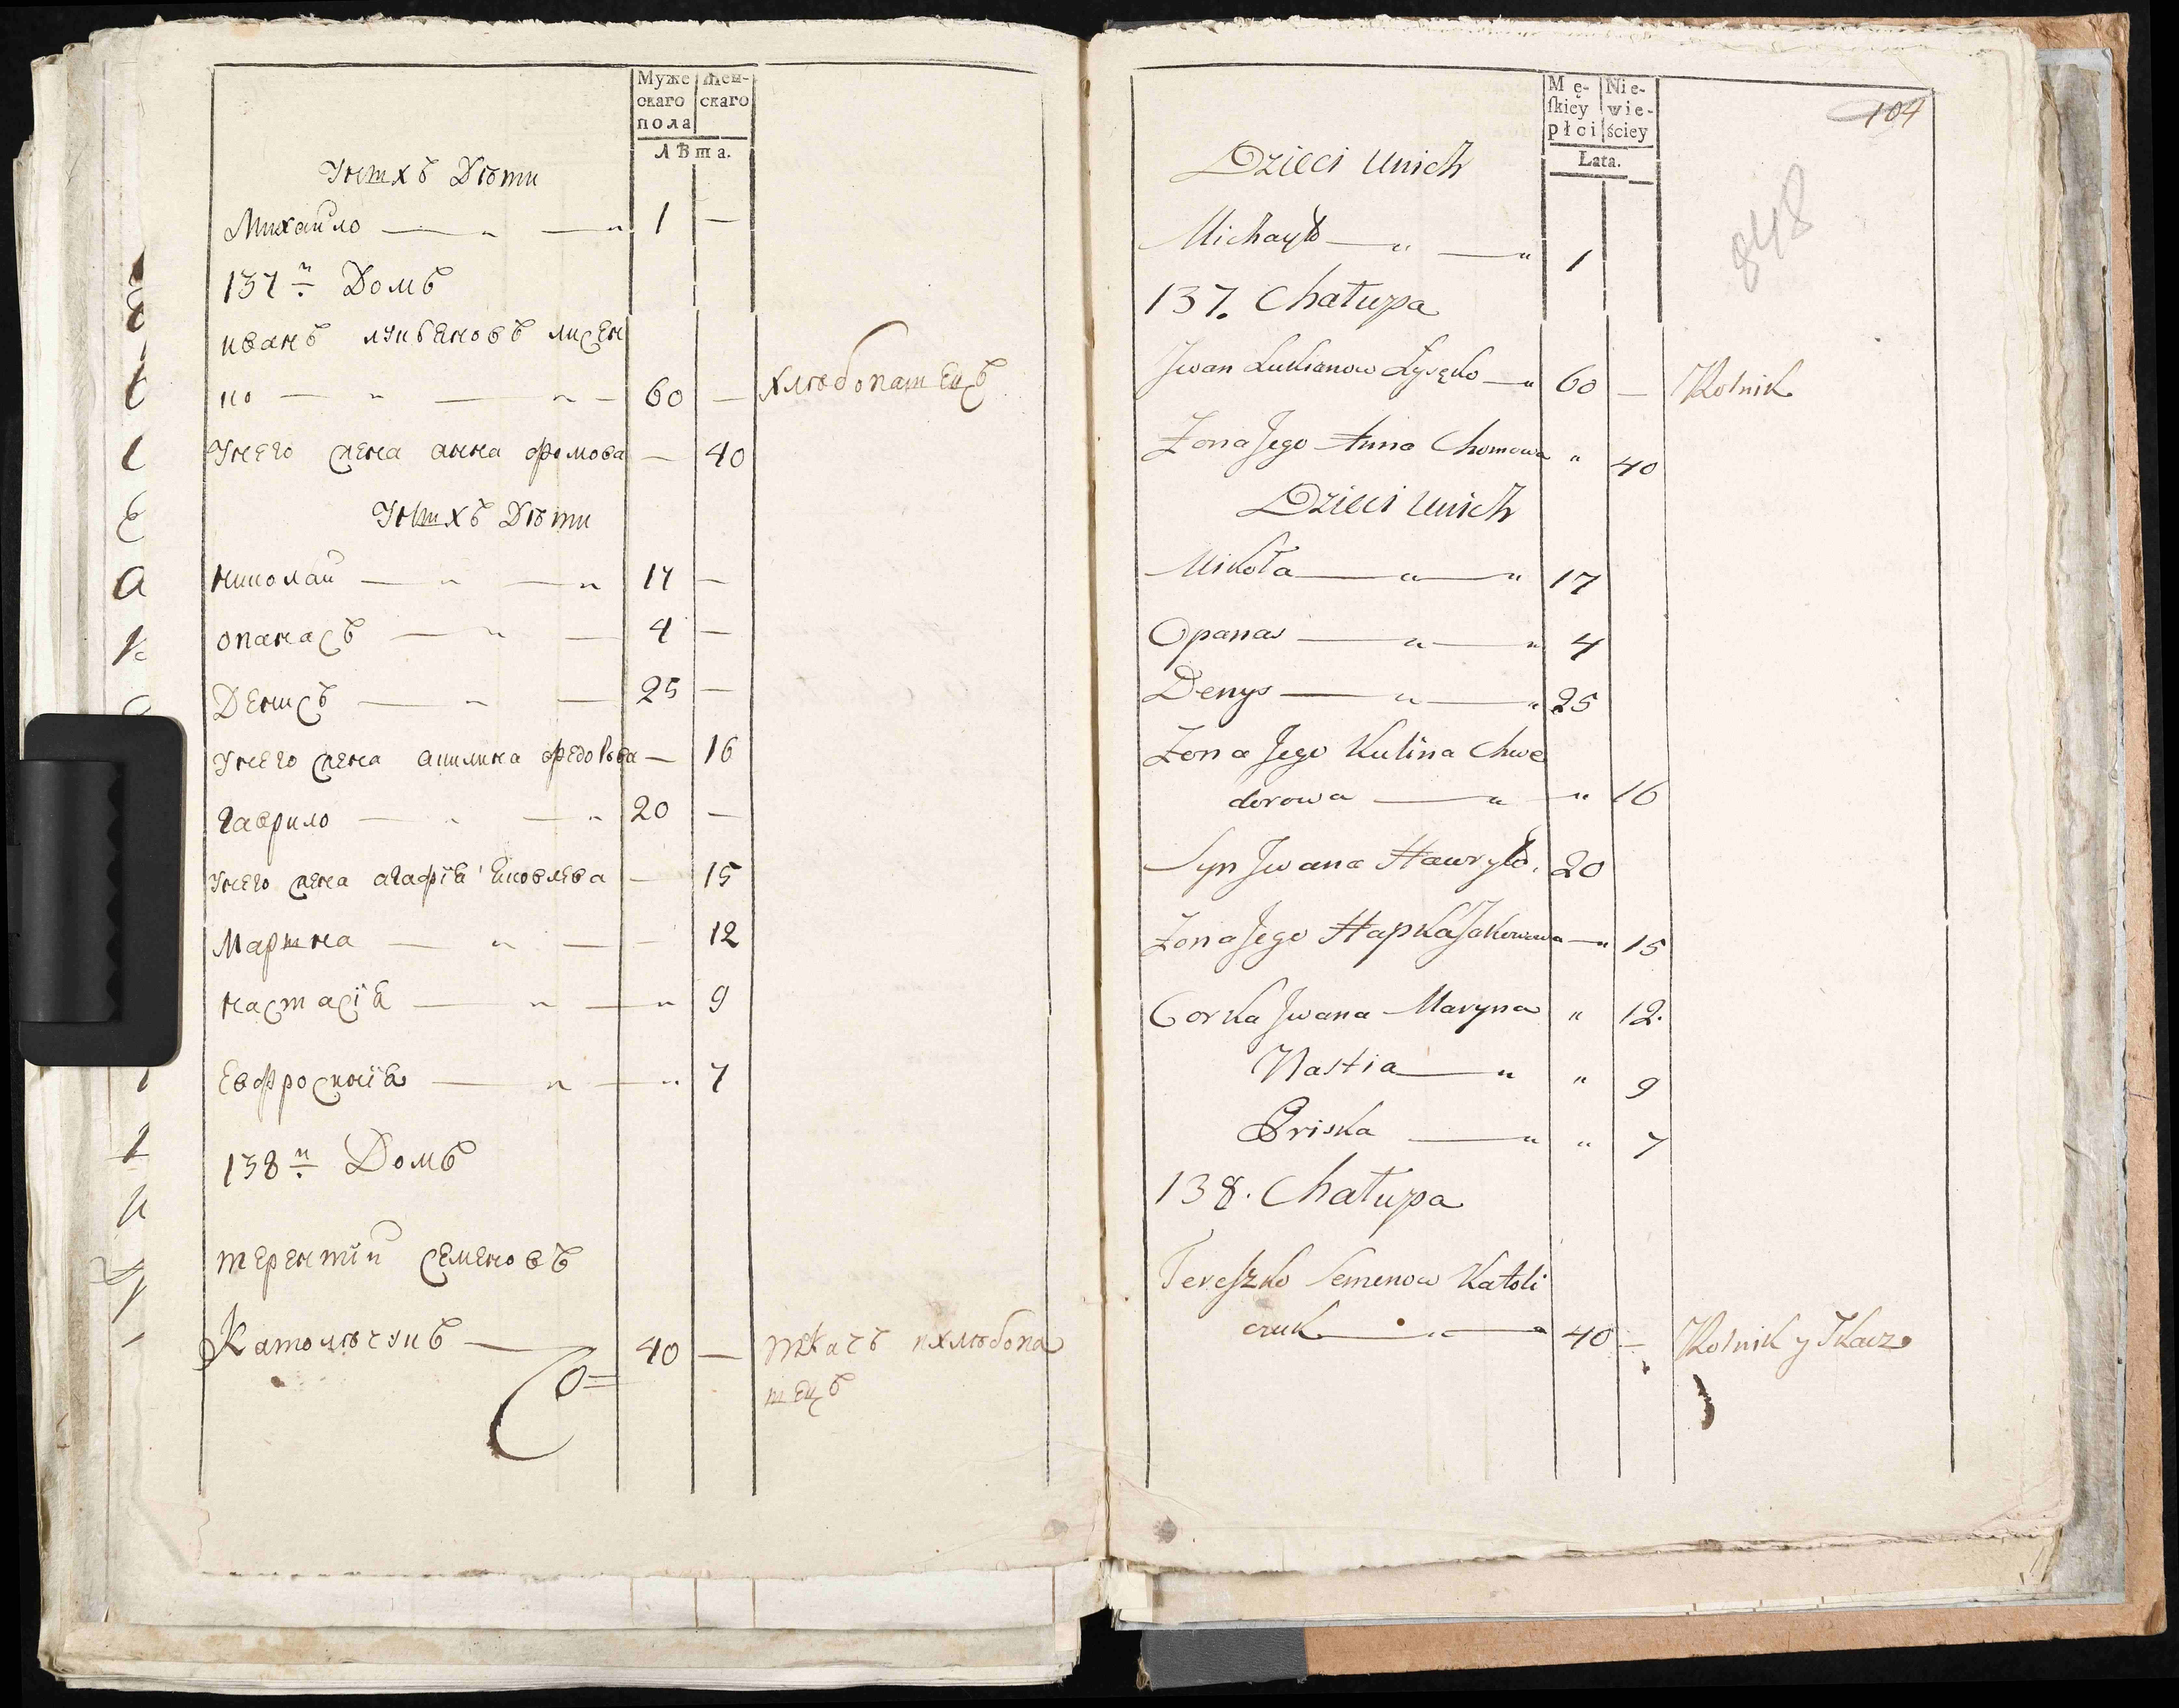 Муже
скаго
пола
Жен-
скаго
Лѣта.
Унихъ Дѣти
Михайло — " — " 1 —
137й Домъ
иванъ лукьяновъ лисен
ко — " — " — 60 — хлѣбопашецъ
Унего жена анна фомова — 40
Унихъ Дѣти
николай — " — " 17 —
опанасъ — " — 4 —
Денисъ — " — 25 —
Унего жена акилина федорова — 16
гаврило — " — " 20 —
Унего жена агафія яковлева — 15
Марина — " — — 12
настасія — " — " 9
Евфросинія — " — " 7
138й Домъ
терентій семеновъ
Католичукъ — 40 — ткачъ и хлѣбопа
шецъ
Mę-
ſkiey
płci
Nie-
wie-
ściey
Łata.
104
848
Dzieci Unich
Michayło — " — " 1
137. Chałupa
Jwan Lukianow Łysęko — " 60 — Rolnik
Żona Jego Anna Chomowa " 40
Dzieci Unich
Mikoła — " — " 17
Opanas — " — " 4
Denys — " — " 25
Żona Jego Kulina Chwe
dorowa — " — " 16
Syn Jwana Hawryło. 20
Żona Jego Hapka Jakowowa — " 15
Corka Jwana Maryna " 12.
Nastia — " " 9
Priska — " " 7
138. Chałupa
Tereszko Semenow Katoli
czuk — " — 40 — Rolnik y Tkacz